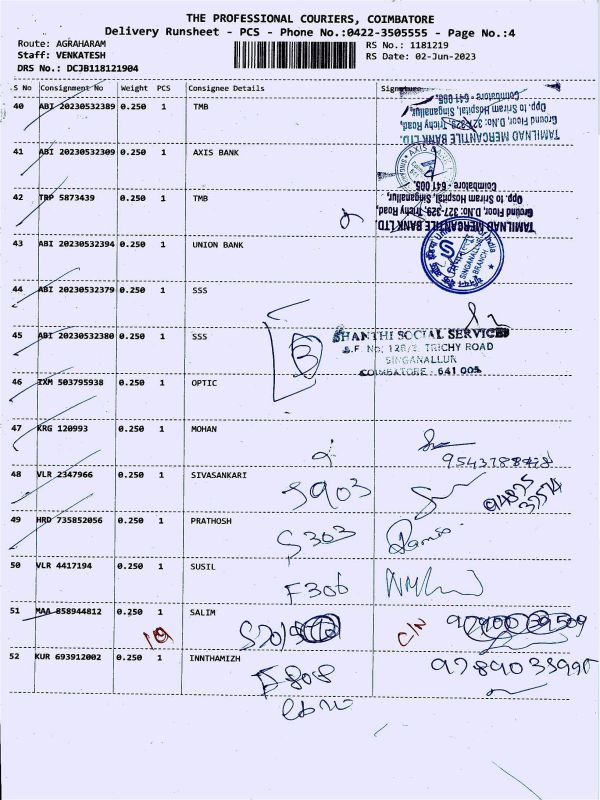 THE PROFESSIONAL COURIERS, COIMBATORE
Delivery Runsheet - PCS - Phone No.:0422-3505555 - Page No.:4
Route: AGRAHARAM RS No.: 1181219
Staff: VENKATESH RS Date: 02-Jun-2023
DRS No.: DCJB118121904
S No Consignment No Weight PCS Consignee Details Signature
40 ABI 20230532389 0.250 1 TMB
TAMILNAD MERCANTILE BANK LTD.
Ground Floor, D.No: 327-329, Trichy Road,
Opp. to Sriram Hospital, Singanallur,
Coimbatore - 641 005.
41 ABI 20230532309 0.250 1 AXIS BANK
AXIS BANK
42 TRP 5873439 0.250 1 TMB
TAMILNAD MERCANTILE BANK LTD.
Ground Floor, D.No: 327-329, Trichy Road,
Opp. to Sriram Hospital, Singanallur,
Coimbatore - 641 005.
43 ABI 20230532394 0.250 1 UNION BANK
SINGANALLUR
BRANCH
44 ABI 20230532379 0.250 1 SSS
45 ABI 20230532380 0.250 1 SSS
3
SHANTHI SOCIAL SERVICES
S.F. No: 128/2, TRICHY ROAD
SINGANALLUR
COIMBATORE - 641 005
46 IXM 503795938 0.250 1 OPTIC
47 KRG 120993 0.250 1 MOHAN
48 VLR 2347966 0.250 1 SIVASANKARI
S903
94875
49 HRD 735852056 0.250 1 PRATHOSH
S303
50 VLR 4417194 0.250 1 SUSIL
F306
51 MAA 858944812 0.250 1 SALIM
C/N
52 KUR 693912002 0.250 1 INNTHAMIZH